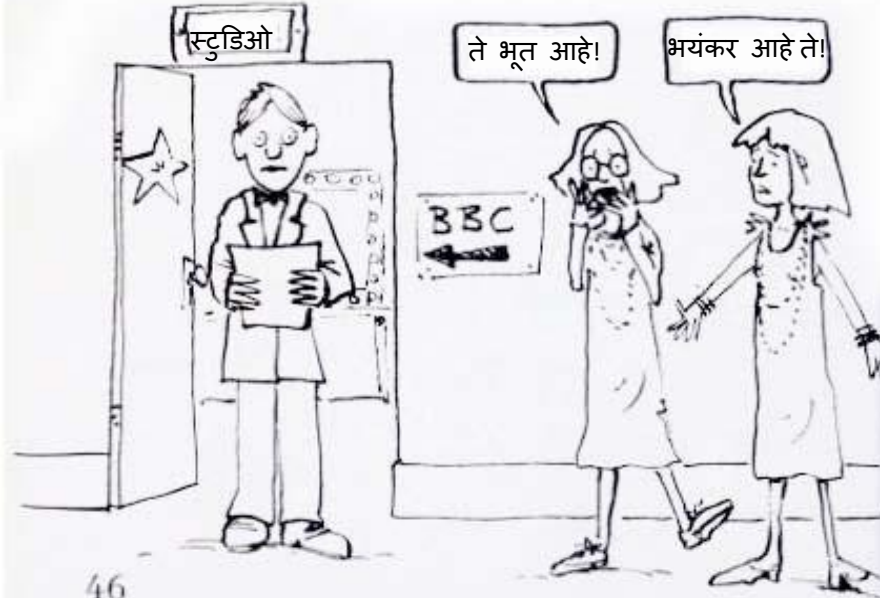 स्टुडिओ
ते भूत आहे!
भयंकर आहे ते!
BBC
46